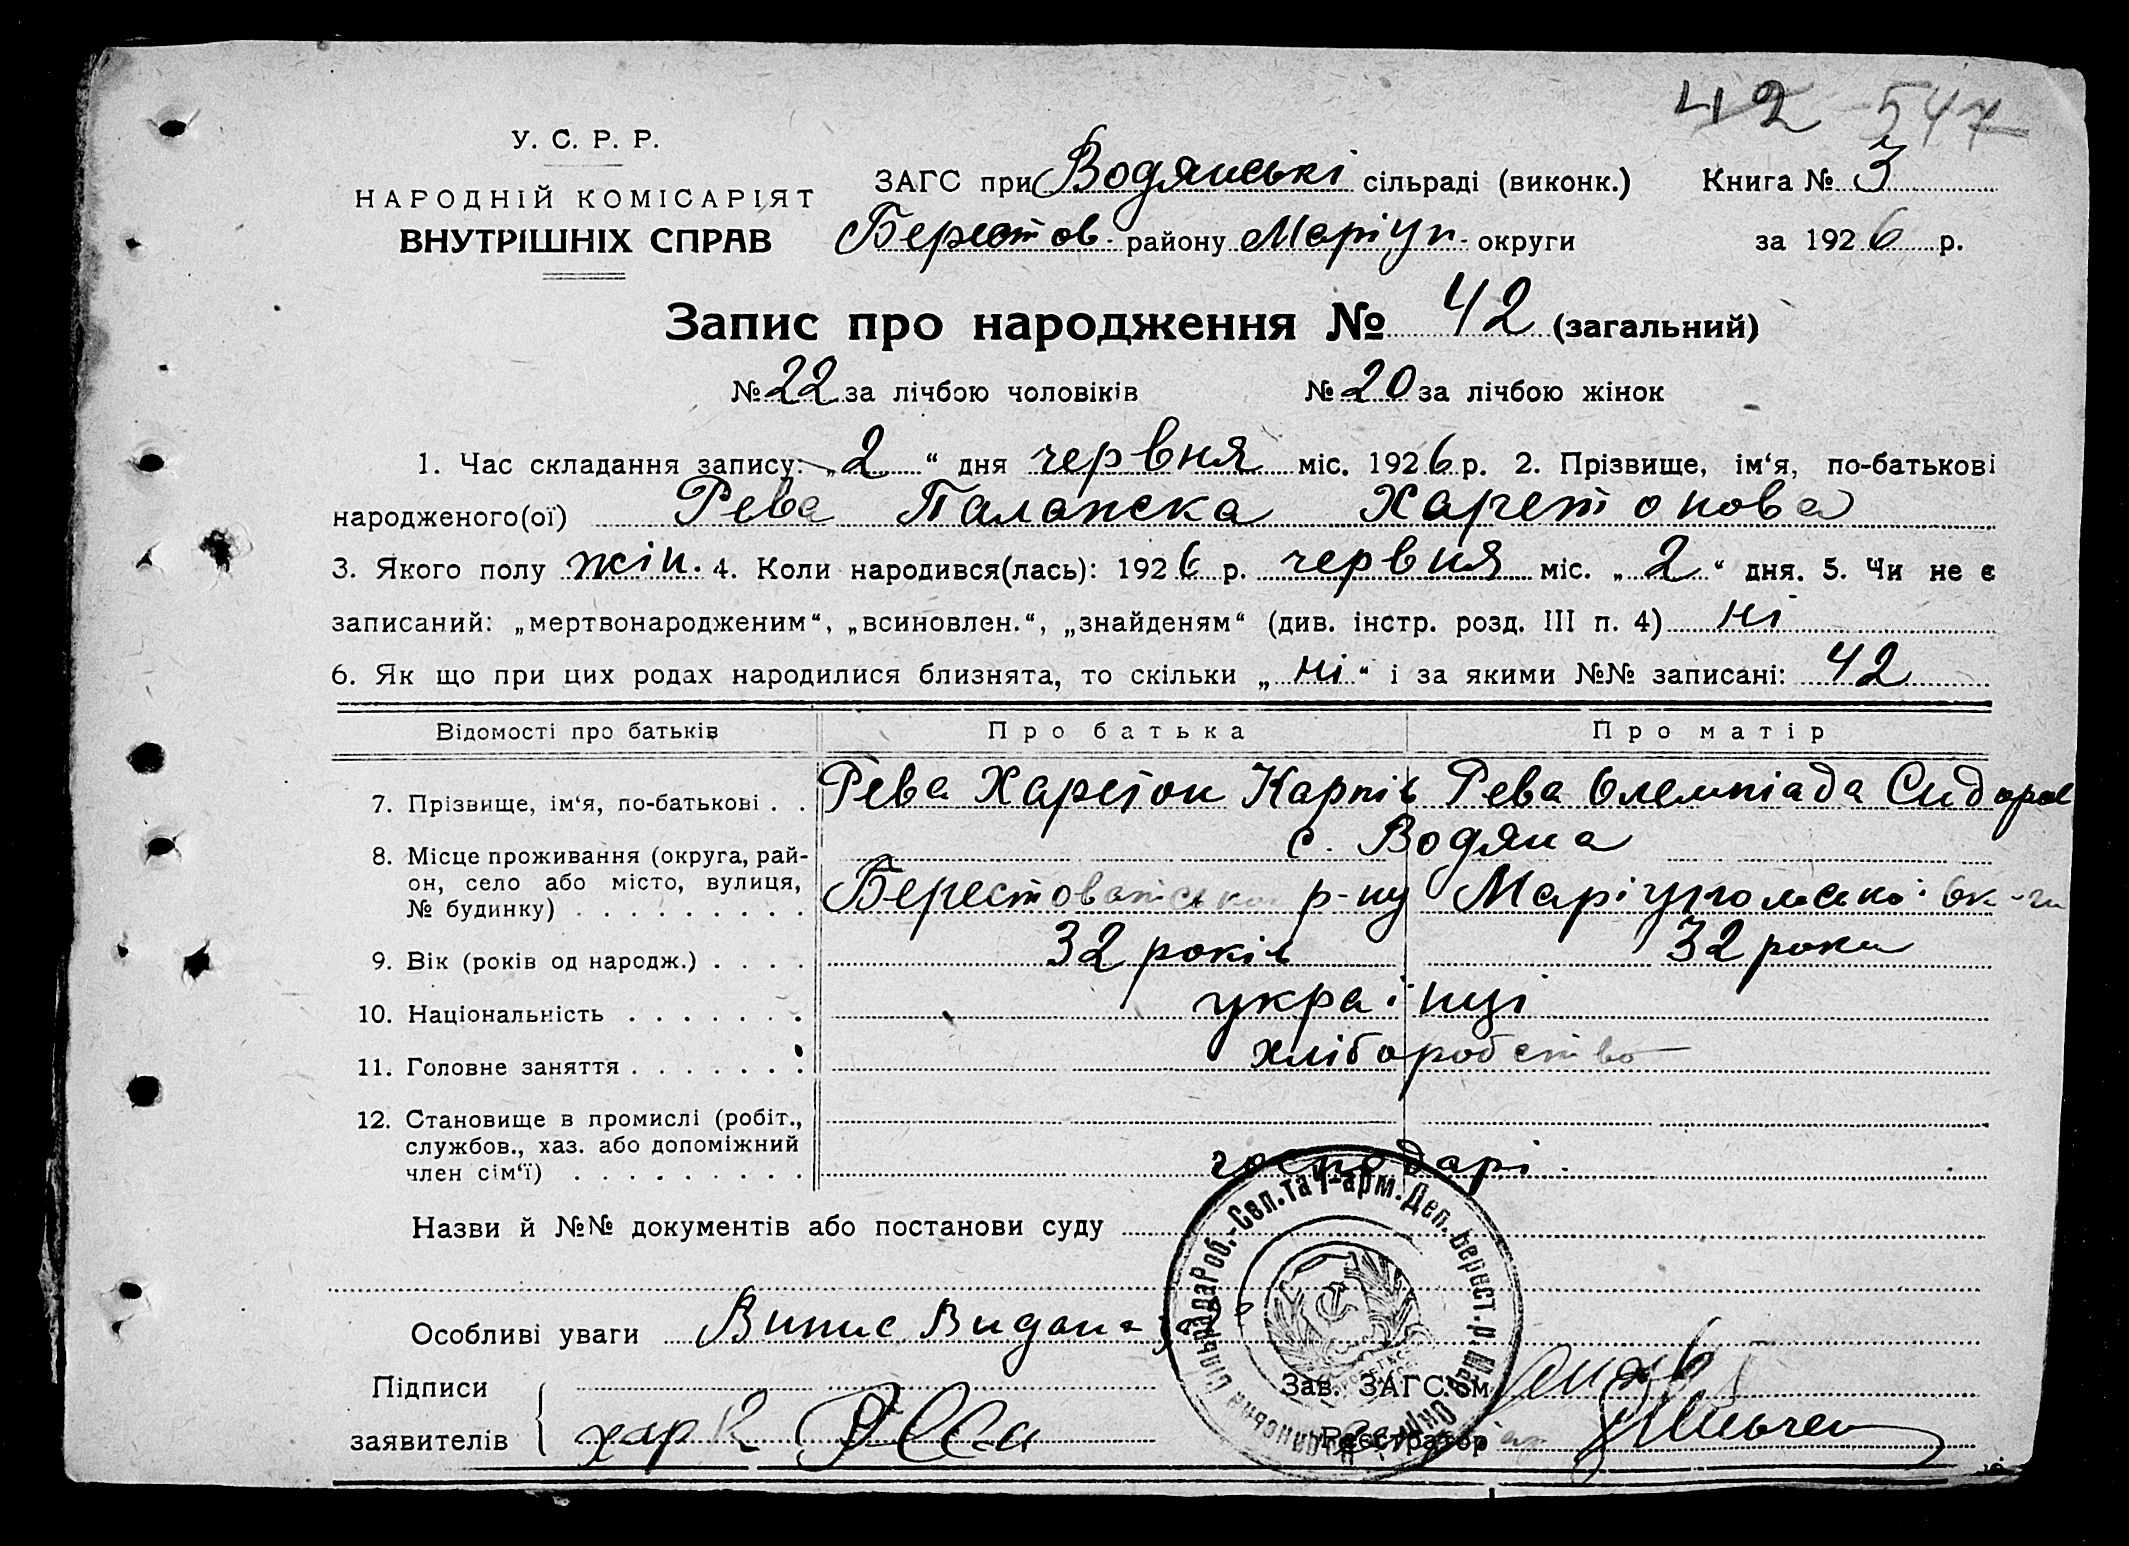 42 547
У. С. Р. Р.
НАРОДНІЙ КОМІСАРІЯТ
ВНУТРІШНІХ СПРАВ
ЗАГС при Водянські сільраді (виконк.) Книга № 3
Берестов- району Маріуп- округи за 1926 р.
Запис про народження № 42 (загальний)
№ 22 за лічбою чоловіків № 20 за лічбою жінок
1. Час складання запису: „2“ дня червня міс. 1926 р. 2. Прізвище, ім‘я, по-батькові
народженого(ої) Рева Палажка Харетонова
3. Якого полу жін. 4. Коли народився(лась): 1926 р. червня міс. „2“ дня. 5. Чи не є
записаний: „мертвонародженим“, „всиновлен.“, „знайденям“ (див. інстр. розд. III п. 4) ні
6. Як що при цих родах народилися близнята, то скільки „ні“ і за якими №№ записані: 42
Відомості про батьків Про батька Про матір
7. Прізвище, ім‘я, по-батькові . . Рева Харетон Карпів Рева Олемпіада Сидоров
8. Місце проживання (округа, рай-
он, село або місто, вулиця,
№ будинку) . . . . . . . . .
с. Водяна
Берестован р-ну Маріупольської ок-ги
9. Вік (років од народж.) . . . . 32 років 32 роки
10. Національність . . . . . . . українці
11. Головне заняття . . . . . . . хліборобство
12. Становище в промислі (робіт.,
службов., хаз. або допоміжний
член сім‘ї) . . . . . . . . . господарі
Назви й №№ документів або постанови суду
Особливі уваги Випис Видан
Підписи
заявителів хар Рева
Зав. ЗАГС‘ом
Реєстратор
Сільрада Роб.-Сел. та Ч-арм. Деп. Берест. р.